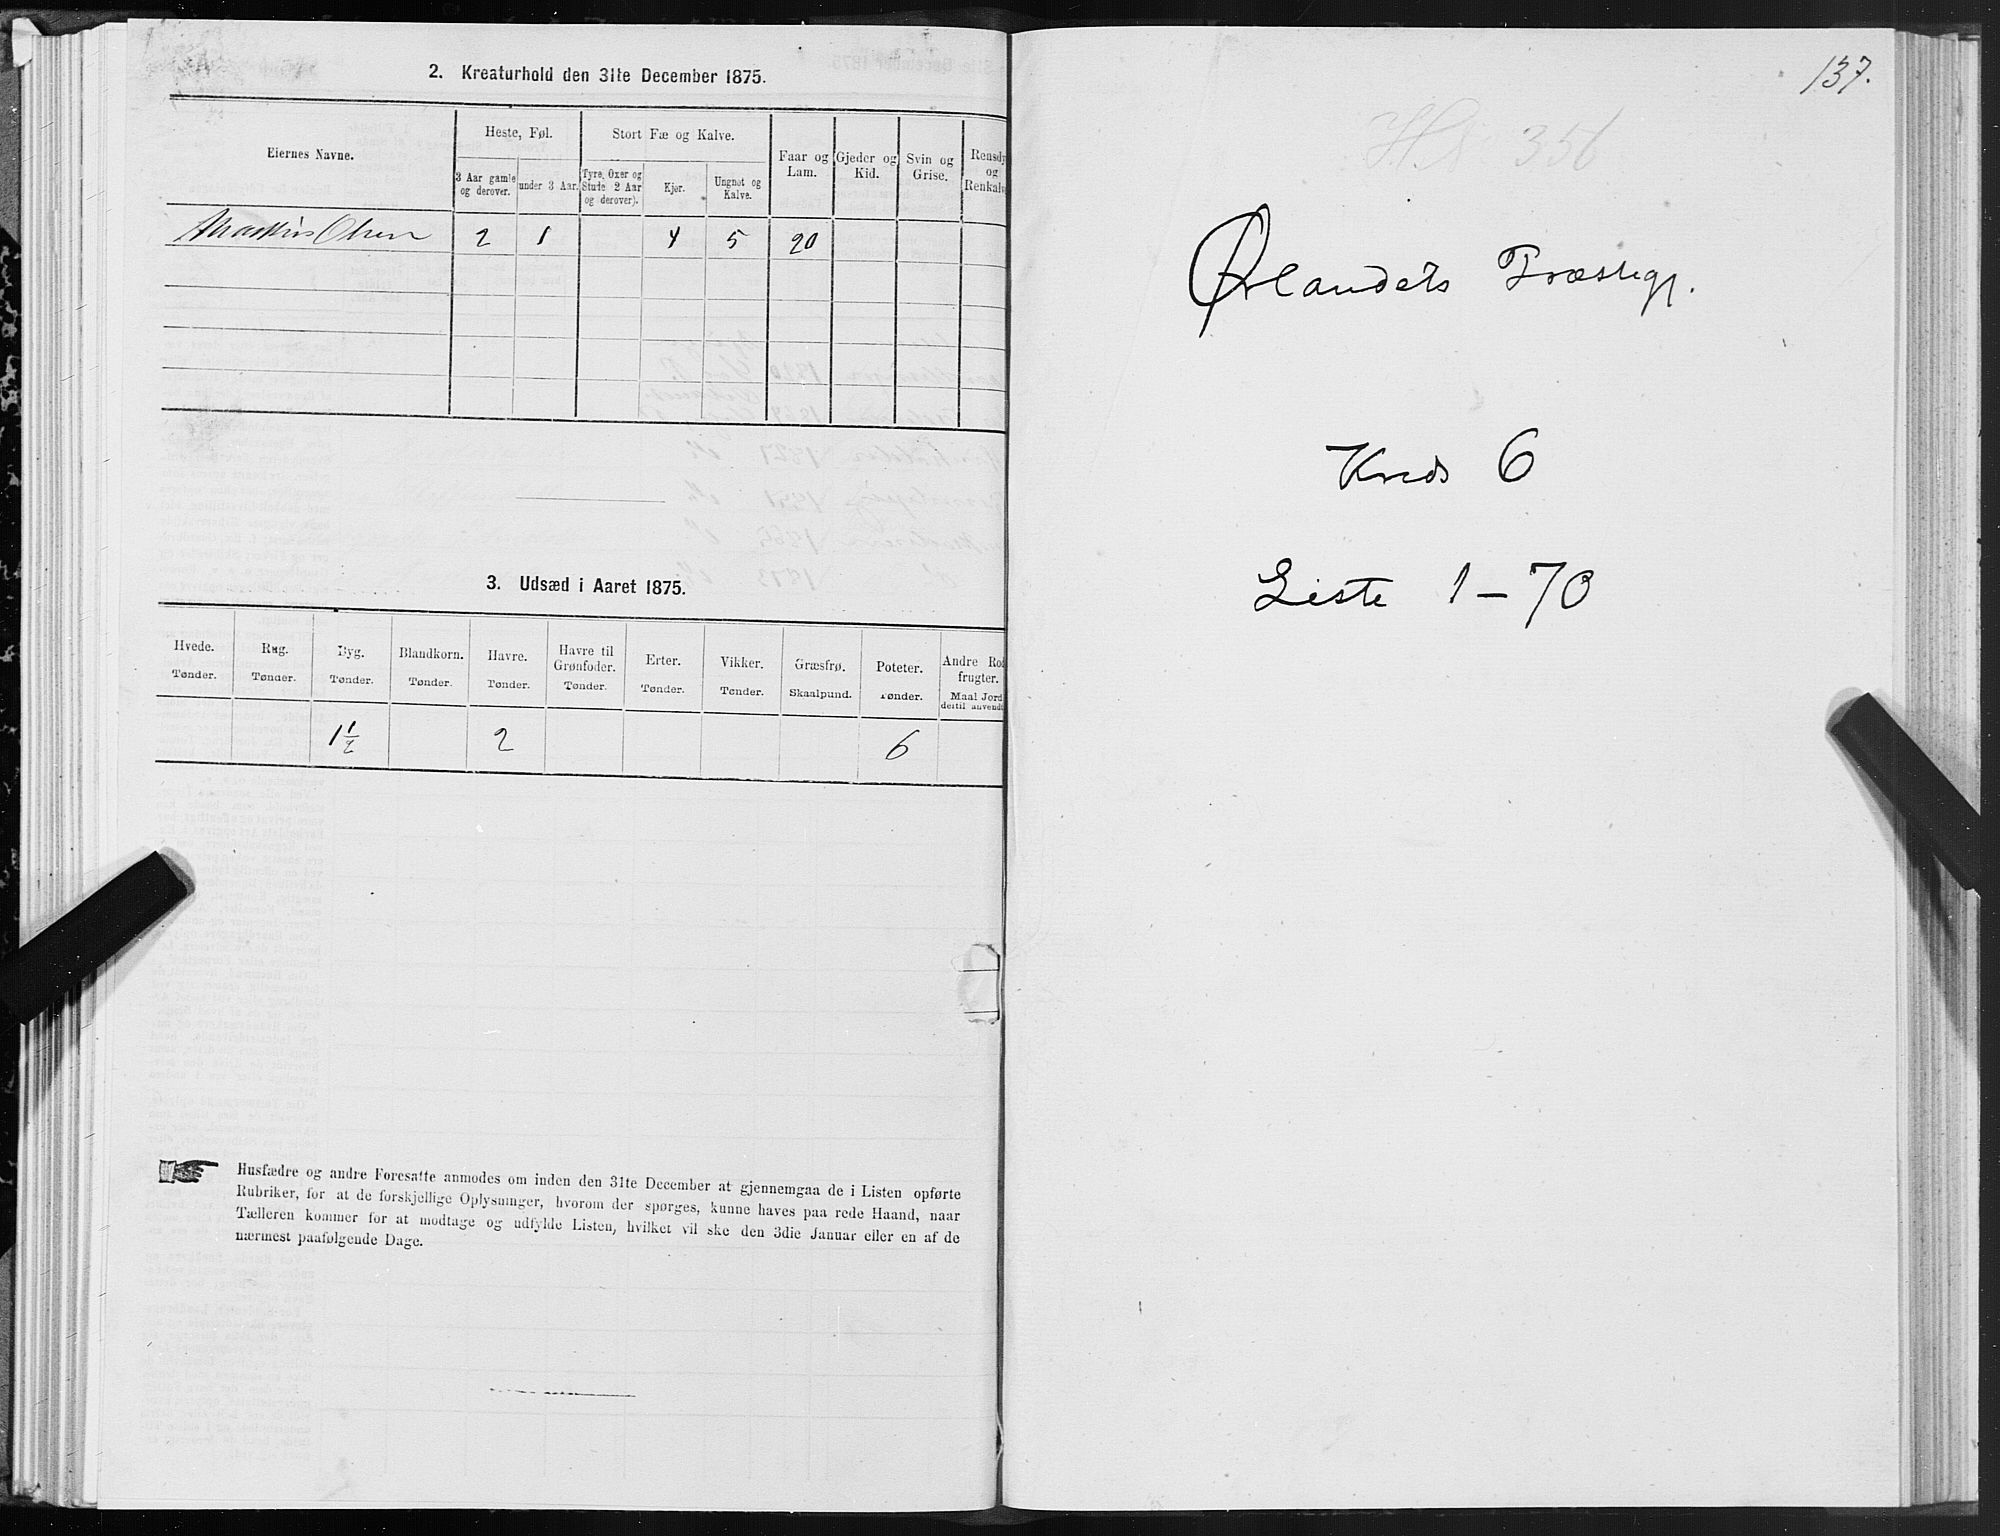 2. Kreaturhold den 31te December 1875.
Eiernes Navne.
Heste, Føl.
Stort Fæ og Kalve.
Faar og Lam.
Gjeder og Kid.
Svin og Grise.
Rensdy
og
Renkalv
3 Aar gamle og derover.
under 3 Aar.
Tyre, Oxer og Stude 2 Aar og derover).
Kjør.
Ungnøt og Kalve.
Mathis Olsen 2 1 4 5 20
3. Udsæd i Aaret 1875.
Hvede. Rug. Byg. Blandkorn. Havre. Havre til Grønfoder. Erter. Vikker. Græsfrø. Poteter. Andre Rod frugter.
Tønder. Tønder. Tønder. Tønder. Tønder. Tønder. Tønder. Tønder. Skaalpund. Tønder. Maal Jord dertil anvendt
1½ 2 6
Husfædre og andre Foresatte anmodes om inden den 31te December at gjennemgaa de i Listen opførte
Rubriker, for at de forskjellige Oplysninger, hvorom der spørges, kunne haves paa rede Haand, naar
Tælleren kommer for at modtage og udfylde Listen, hvilket vil ske den 3die Januar eller en af de
nærmest paafølgende Dage.
137.
356
Ørlandets Præstegj.
Kreds 6
Liste 1-70